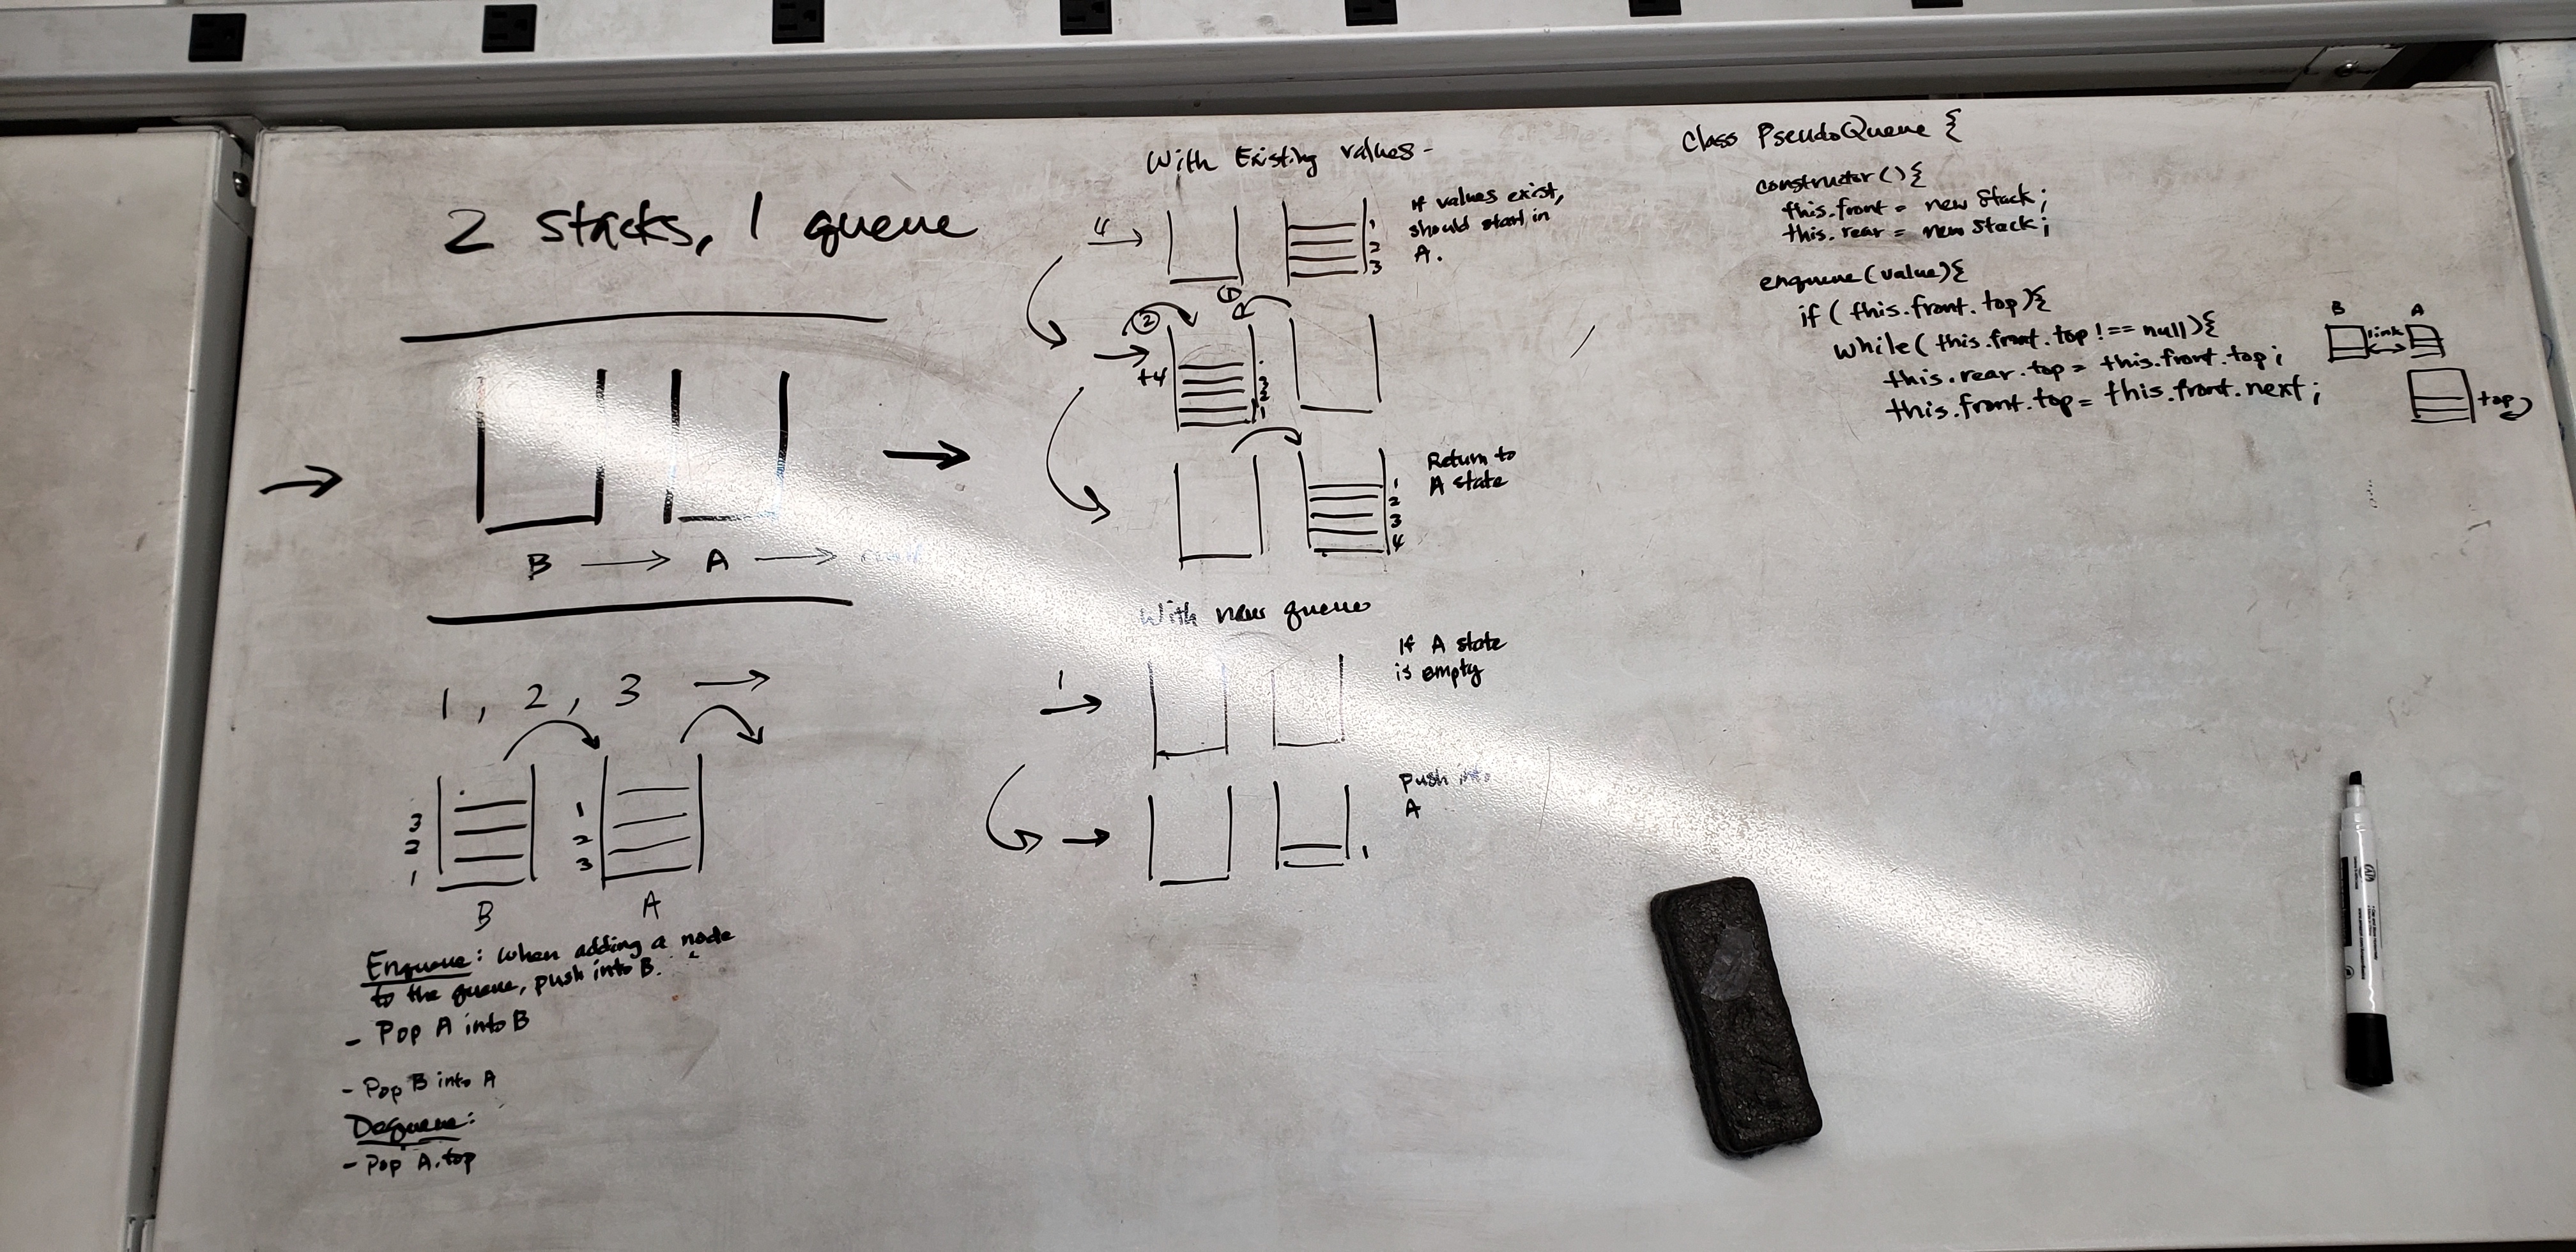 2 stacks, 1 queue
B → A →
1, 2, 3 →
3
2
1
B
1
2
3
A
Enqueue: when adding a node
to the queue, push into B.
- Pop A into B
- Pop B into A
Dequeue:
- Pop A.top
With Existing values -
4
1
2
3
If values exist,
should start in
A.
1
2
+4
3
2
1
1
2
3
4
Return to
A state
With new queue
1
If A state
is empty
1
push into
A
Class PseudoQueue {
constructor(){
this.front = new Stack;
this.rear = new Stack;
enqueue(value){
if (this.front.top){
while(this.front.top !== null){
this.rear.top = this.front.top;
this.front.top = this.front.next;
B
link
A
top